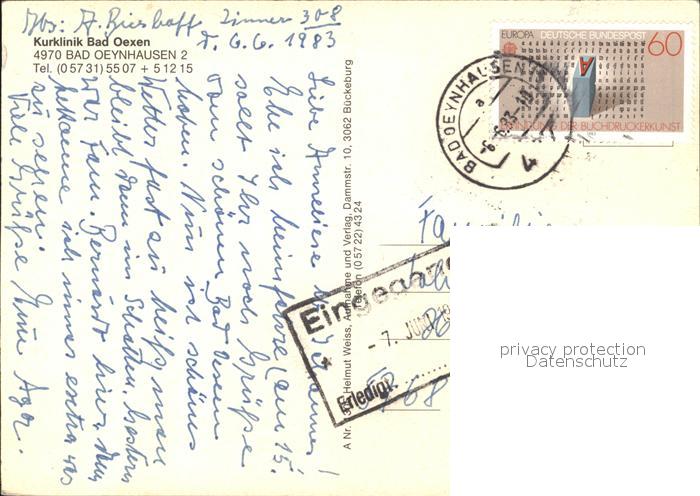 Abs: A. Bieshoff Zimmer 308
Kurklinik Bad Oexen
4970 BAD OEYNHAUSEN 2
Tel. (0 57 31) 55 07 + 5 12 15
d. 6.6.1983
Liebe Anneliese Johannes!
Ehe ich heimfahre (am 15.
sollt Ihr noch Grüße
vom schönen Bad Oexen
haben. Nun ist schönes
Wetter fast zu heiß, man
bleibt dann im Schatten. Gestern
war Fam. Bernardt hier. Nun
bekomme ich immer extra was
zu essen.
Viele Grüße Eure Agn.
A Nr. Helmut Weiss, Aufnahme und Verlag, Dammstr. 10, 3062 Bückeburg
Telefon (0 57 22) 43 24
EUROPA DEUTSCHE BUNDESPOST 60
A
DER BUCHDRUCKERKUNST
BAD OEYNHAUSEN 1
a
Familie
Eingegang
- 7. JUNI
Erledigt
68
privacy protection
Datenschutz